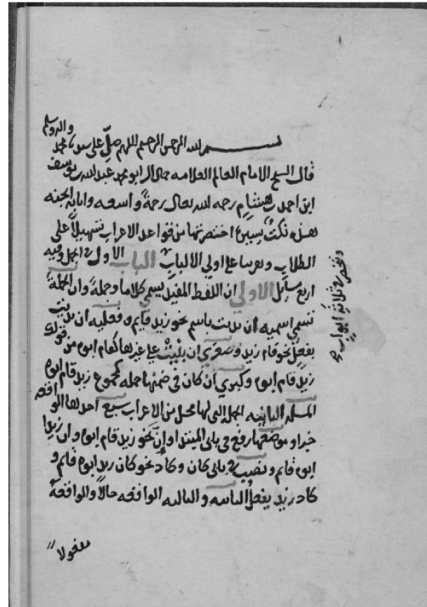 بسم الله الرحمن الرحيم اللهم صل على سيدنا محمد
واله وسلم
قال الشيخ الامام العالم العلامه جمال الدين ابو محمد عبد الله بن يوسف
ابن احمد بن هشام رحمه الله تعالى رحمة واسعه واباحه الجنه
هذه نكت يسيرة اختصرتها من قواعد الاعراب تسهيلا على
الطلاب وتقريبا على اولي الالباب الباب الاول في الجمل وفيه
اربع مسايل الاولى ان اللفظ المفيد يسمى كلاما وجملة وان الجملة
تسمى اسميه ان بدئت باسم نحو زيد قايم وفعليه ان بدئت
بفعل نحو قام زيد وصغرى ان بنيت على غيرها كقام ابوه من قولك
زيد قام ابوه وكبرى ان كان في ضمنها جمله كمجموع زيد قام ابوه
المسله الثانيه الجمل التي لها محل من الاعراب سبع احدها الواقعه
خبرا وموضعها رفع في بابي المبتدا وان نحو زيد قام ابوه وان زيدا
ابوه قايم ونصب في بابي كان وكاد نحو كان زيد ابوه قايم و
كاد زيد يفعل الثانيه والثالثه الواقعه حالا والواقعة
مفعولا
وتنحصر في ثلاثة ابواب